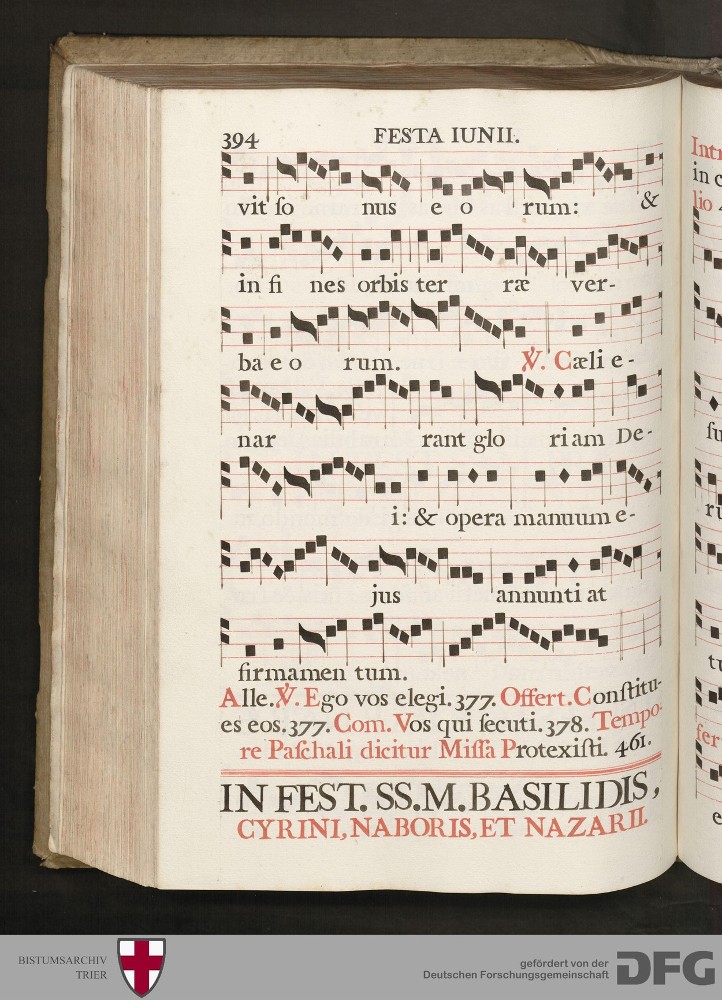 394 FESTA IUNII.
vit ſo nus e o rum: &
in fi nes orbis ter ræ ver-
ba e o rum. ℣. Cæli e-
nar rant glo riam De-
i: & opera manuum e-
jus annunti at
firmamen tum.
Alle. ℣. Ego vos elegi. 377. Offert. Conſtitu-
es eos. 377. Com. Vos qui ſecuti. 378. Tempo-
re Paſchali dicitur Miſſa Protexiſti. 461.
IN FEST. SS. M. BASILIDIS,
CYRINI, NABORIS, ET NAZARII.
in c
lio
ſu
ru
tu
e
BISTUMSARCHIV
TRIER
gefördert von der
Deutschen Forschungsgemeinschaft
DFG